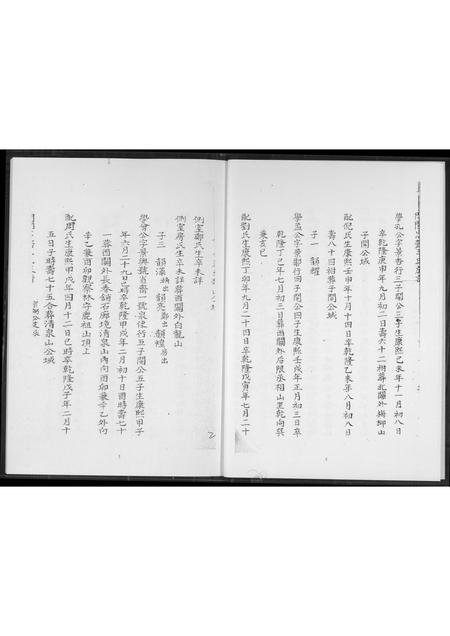 學孔公字景香行三子開公三子生康熙乙未年十一月初八日
卒乾隆庚申年九月初二日壽六十二相葬北關外梅柳山
子開公城
配倪氏生康熙壬申年十月十四日卒乾隆乙未年八月初八日
壽八十四相葬子開公城
子一 韻耀
學孟公字景鄒行四子開公四子生康熙壬戌年正月初三日卒
乾隆丁巳年七月初三日葬西關外后限承相山里乾向巽
兼亥巳
配劉氏生康熙丁卯年九月二十四日卒乾隆戊寅年七月二十
側室鄭氏生卒未詳
側室詹氏生卒未詳葬西關外白龍山
子三 韻藻 韻亮 韻煌
學曾公字景輿號省齋一號泉使行五子開公五子生康熙甲子
年六月二十九日 卒乾隆甲戌年二月初十日酉時壽七十
一葬西關外長春鋪石廊境清泉山內向酉卯兼辛乙外向
辛乙兼酉卯觀察林寺鹿祖山頂上
配周氏生康熙甲戌年四月十二日巳時卒乾隆戊子年二月十
五日子時壽七十五合葬清泉山公城